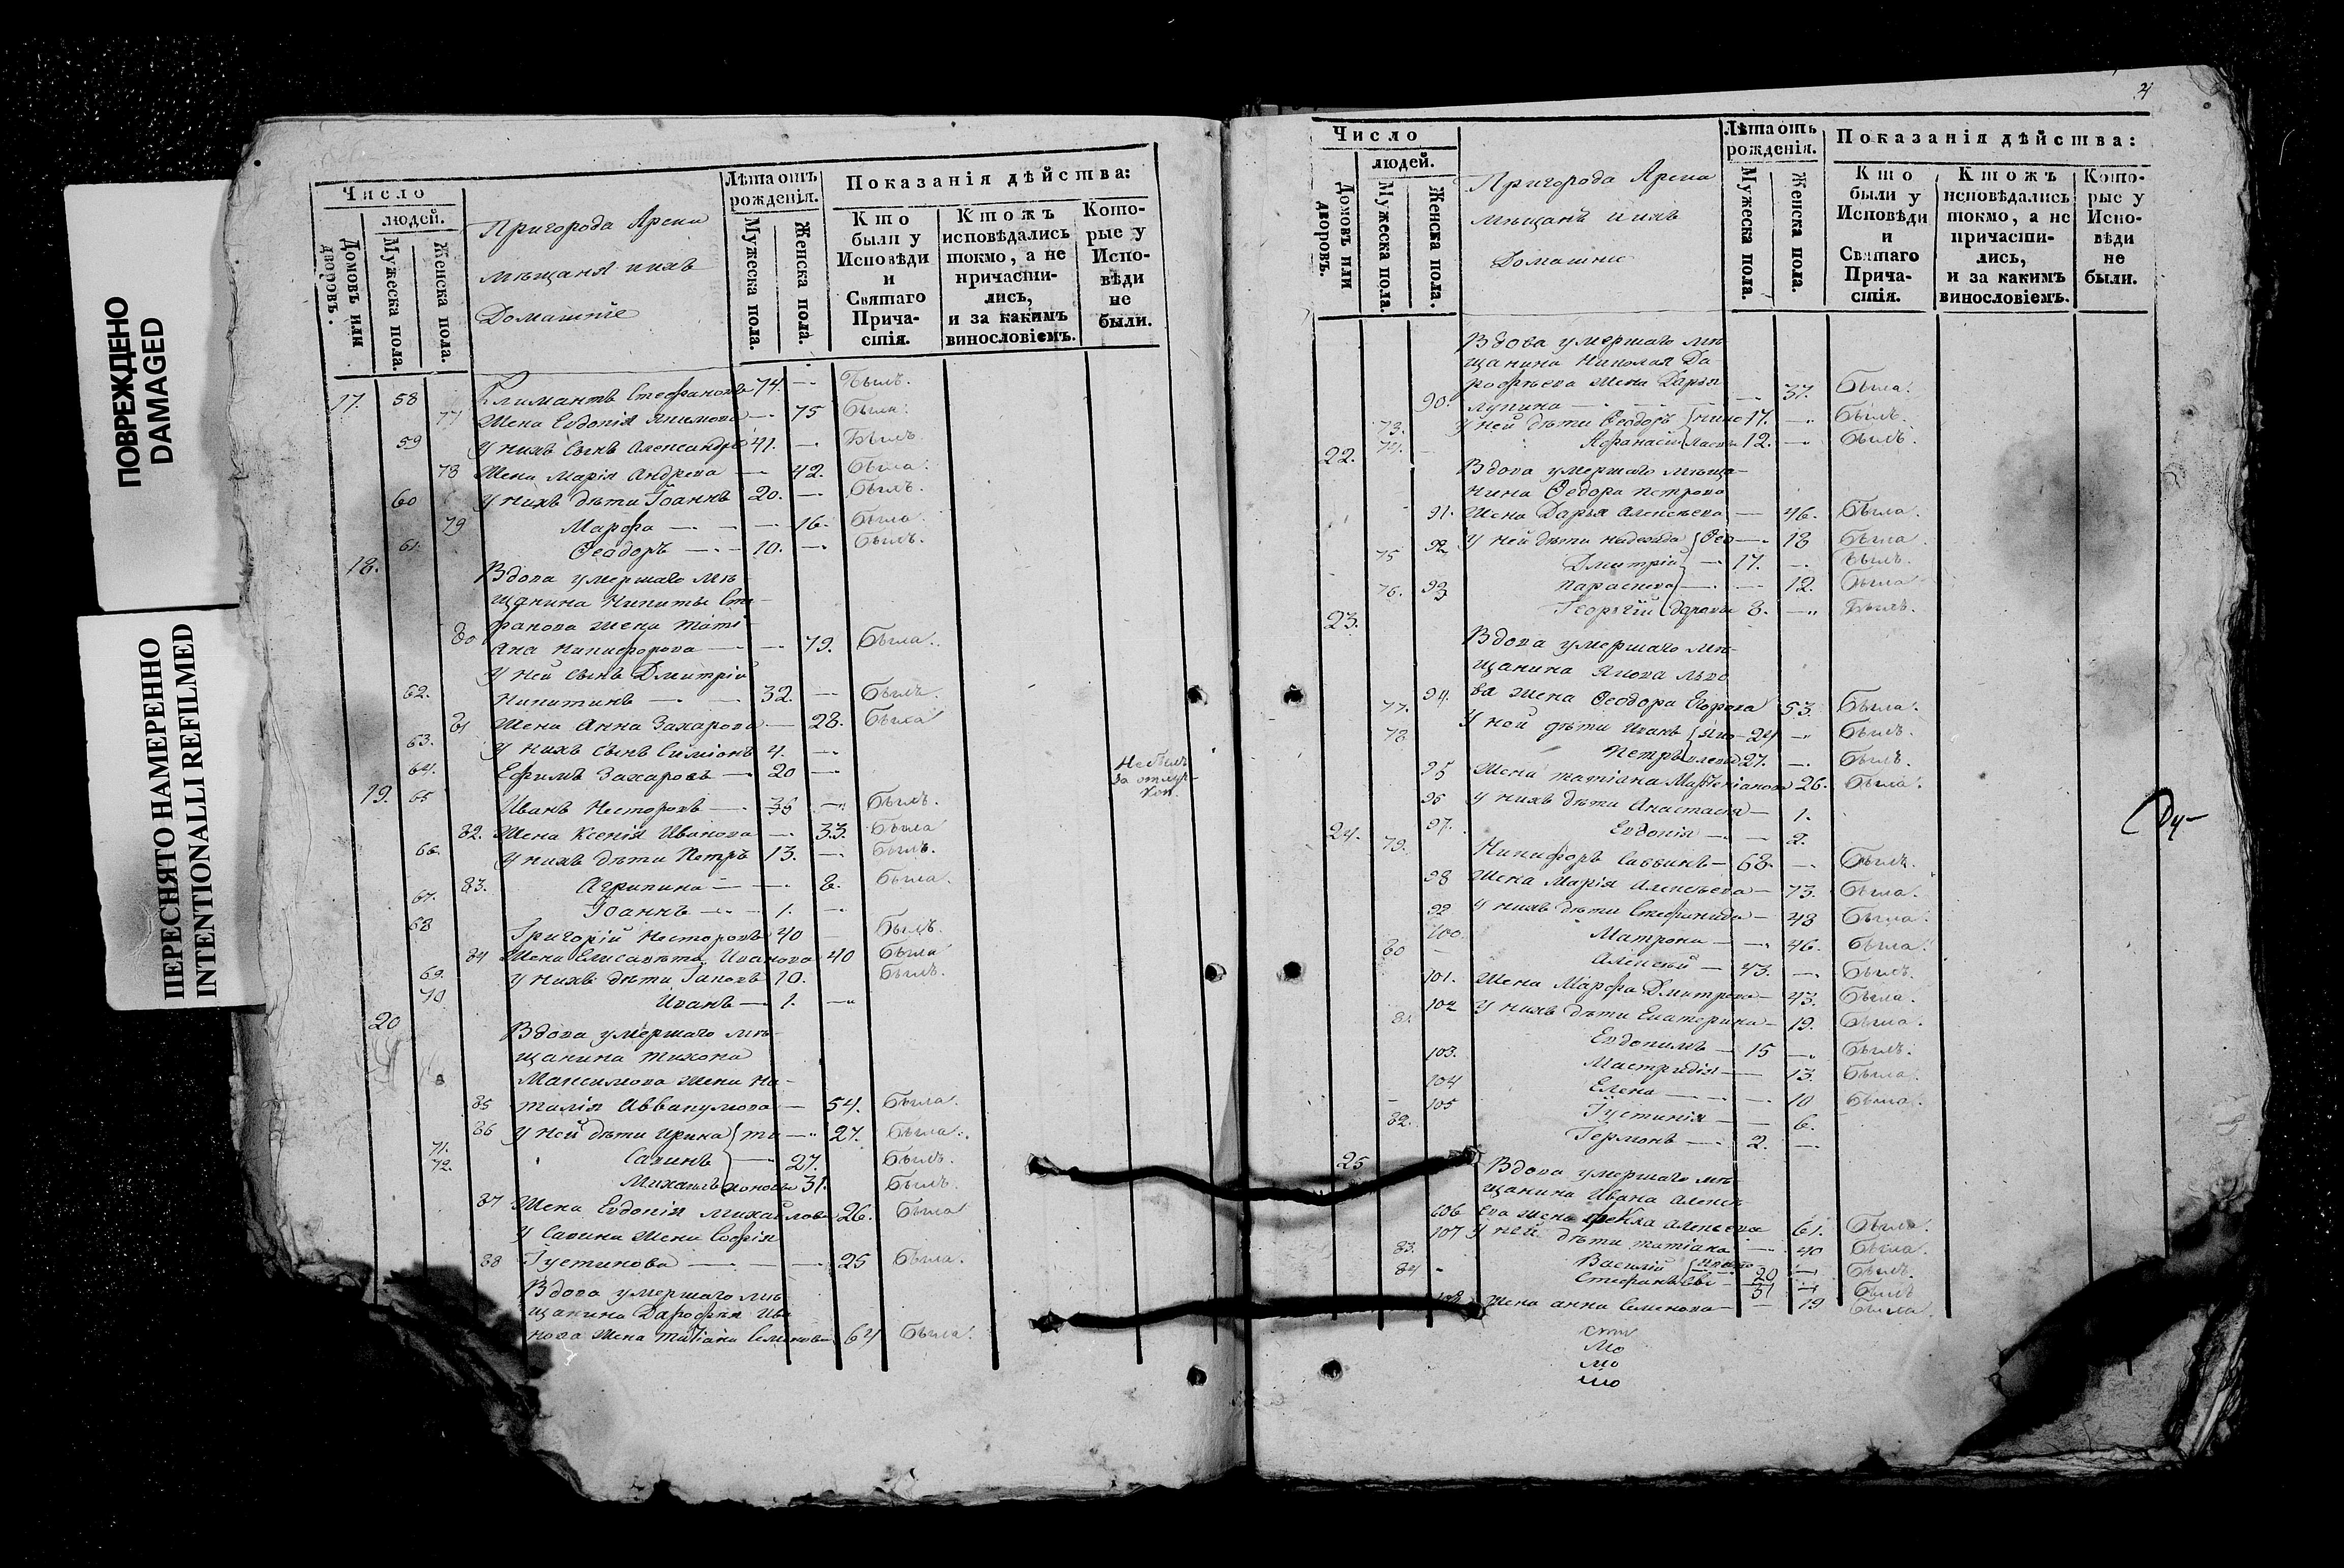 ПОВРЕЖДЕНО
DAMAGED
ПЕРЕСНЯТО НАМЕРЕННО
INTENTIONALLI REFILMED
Число
людей.
Домовъ или дворовъ.
Мужеска пола.
Женска пола.
Пригорода Арска
мѣщаня ихъ
Домашніе
Лѣта отъ рожденія.
Мужеска пола.
Женска пола.
Показанія дѣйства:
Кто были у Исповѣди и Святаго Прича-стія.
Ктожъ исповѣдались токмо, а не причасти-лись, и за какимъ винословіемъ.
Кото-рые у Испо-вѣди не были.
17. 58 Климантъ Стефановъ 74. — Былъ.
77 Жена Евдокія Якимова — 75 Была.
59 У нихъ сынъ Александръ 41. — Былъ
78 Жена Марія Андреева — 42. Была.
60 У нихъ дѣти Іоаннъ 20. — Былъ.
79 Марфа — — 16. Была.
61. Ѳеодоръ — — 10. — Былъ.
18. Вдова умершаго мѣ-
щанина Никиты Сте-
фанова жена Татї-
80 яна Никифорова — — 79. Была.
У ней сынъ Дмитрій
62. Никитинъ — — 32. — Былъ.
81 Жена Анна Захарова — 28. Была
63. У нихъ сынъ Симіонъ 4. —
64. Ефимъ Захаровъ — 20 — Не былъ
за отлуч-
кою.
19. 65 Иванъ Несторовъ — 35 — Былъ.
82. Жена Ксенія Иванова — 33. Была
66. У нихъ дѣти Петръ 13. — Былъ.
83. Агрипина — — 8. Была.
67. Іоаннъ — — 1. —
68 Григорій Несторовъ 40 — Былъ.
84 Жена Елисавета Иванова 40 Была
69. У нихъ дѣти Іаковъ 10. Былъ.
70. Иванъ — 1. —
20 Вдова умершаго мѣ-
щанина Тихона
Максимова жена На-
85 талія Аввакумова — 54. Была.
86 У ней дѣти Ирина ти — 27. Была.
71. Савинъ — 27. Былъ.
72. Михаилъ хоновы 31. Былъ.
87 Жена Евдокія Михайлова 26. Была
У Савина жена Софія
88 Густинова — — — 25 Была.
Вдова умершаго мѣ-
щанина Дарофѣя Ива-
нова жена Татіана Семенова 64 Была.
4
Число
людей.
Домовъ или дворовъ.
Мужеска пола.
Женска пола.
Пригорода Арска
мѣщанъ и ихъ
Домашніе
Лѣта отъ рожденія.
Мужеска пола.
Женска пола.
Показанія дѣйства:
Кто были у Исповѣди и Святаго Прича-стія.
Ктожъ исповѣдались токмо, а не причасти-лись, и за какимъ винословіемъ.
Кото-рые у Испо-вѣди не были.
Вдова умершаго мѣ-
щанина Николая Да
рофѣева жена Дарья
90. Лупина — — 37. Была.
73. У ней дѣти Ѳеодоръ нико 17. — Былъ
74. Афанасій лаевы 12. — Былъ.
22. Вдова умершаго мѣща-
нина Ѳедора Петрова
91. Жена Дарья Алексѣева — 46. Была.
92 У ней дѣти Надежда Ѳео — 18 Была
75 Дмитрій — 17. — Былъ.
93 Параскева — — 12. Была
76. Георгій доровы 8. — Былъ.
23. Вдова умершаго мѣ-
щанина Якова Льво
94. ва жена Ѳеодора Егорова 53. Была.
77. У ней дѣти Иванъ яко 24 — Былъ.
78 Петръ влевы 27. — Былъ.
95 Жена Татіана Маркеліанова 26. Была.
96 У нихъ дѣти Анастасія — 1.
97. Евдокія — — 2.
24. 79. Никифоръ Саввинъ — 68. — Былъ.
98 Жена Марія Алексѣева — 73. Была.
99 У нихъ дѣти Стефанида — 48 Была.
100. Матрона — — 46. Была.
80 Алексѣй — 43. — Былъ.
101. Жена Марфа Дмитрева — 43. Была.
102 У нихъ дѣти Екатерина — 19. Была.
81. Евдокимъ — 15 — Былъ.
103. Мастридія — 13. Была.
104 Елена — — 10 Была.
105 Густинія — — 6.
82. Гермонъ — 2. —
25 Вдова умершаго мѣ-
щанина Ивана Алексѣ
106 ева жена Ѳекла Алексѣева 61. Была.
107 У ней дѣти Татіана — 40 Была.
83. Василій 20 — Былъ.
84 Стефанъ 31 — Былъ
108 Жена Анна Семенова — — 19 Была.
Ду-